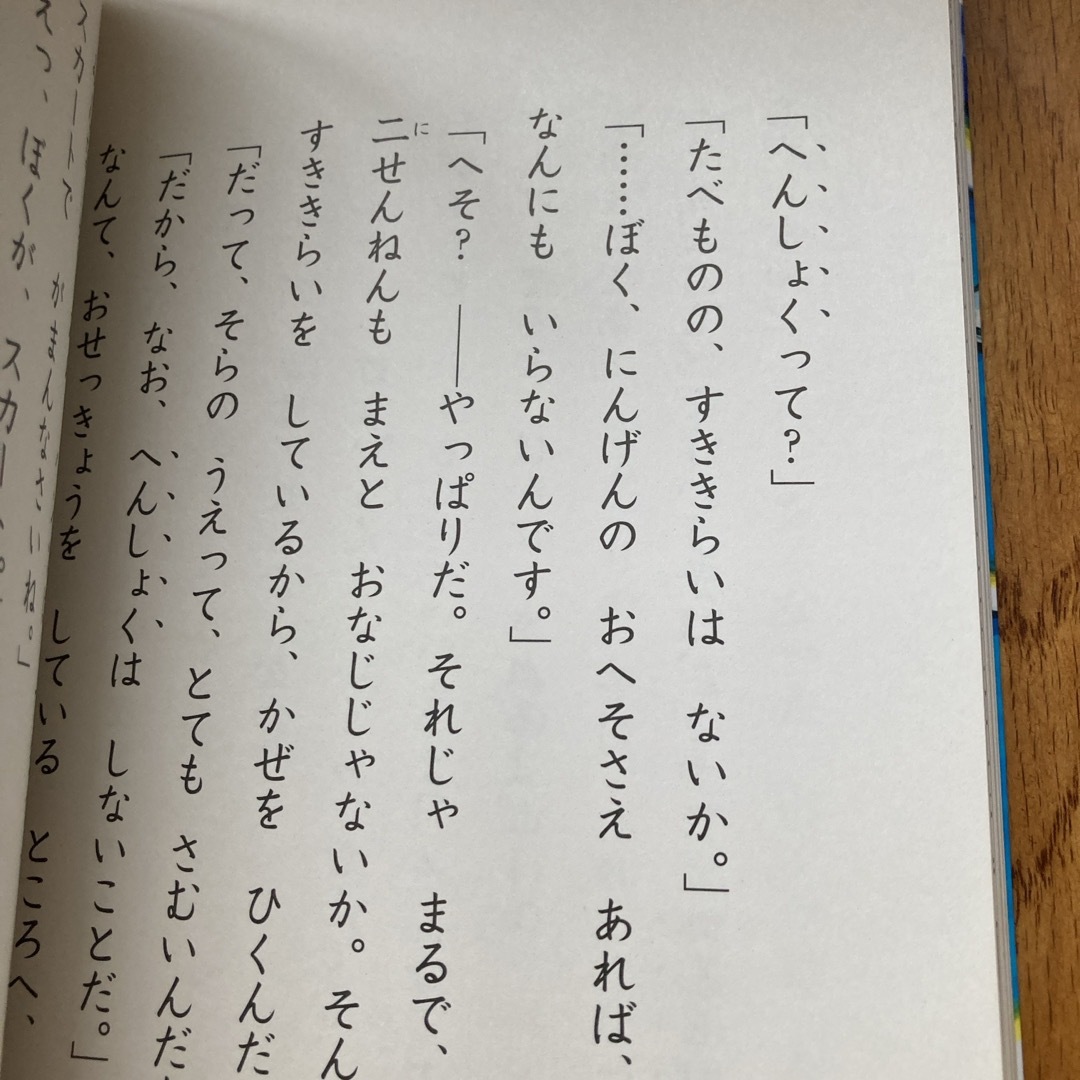 「へんしょくって?」
「たべものの、すききらいは ないか。」
「……ぼく、にんげんの おへそさえ あれば、
なんにも いらないんです。」
「へそ? ――やっぱりだ。それじゃ まるで、
二せんねんも まえと おなじじゃないか。そん
すききらいを しているから、かぜを ひくんだ
「だって、そらの うえって、とても さむいんだ
「だから、なお、へんしょくは しないことだ。」
なんて、おせっきょうを している ところへ、
がまんなさいね。」
スカートで
えっ、ぼくが、スカー